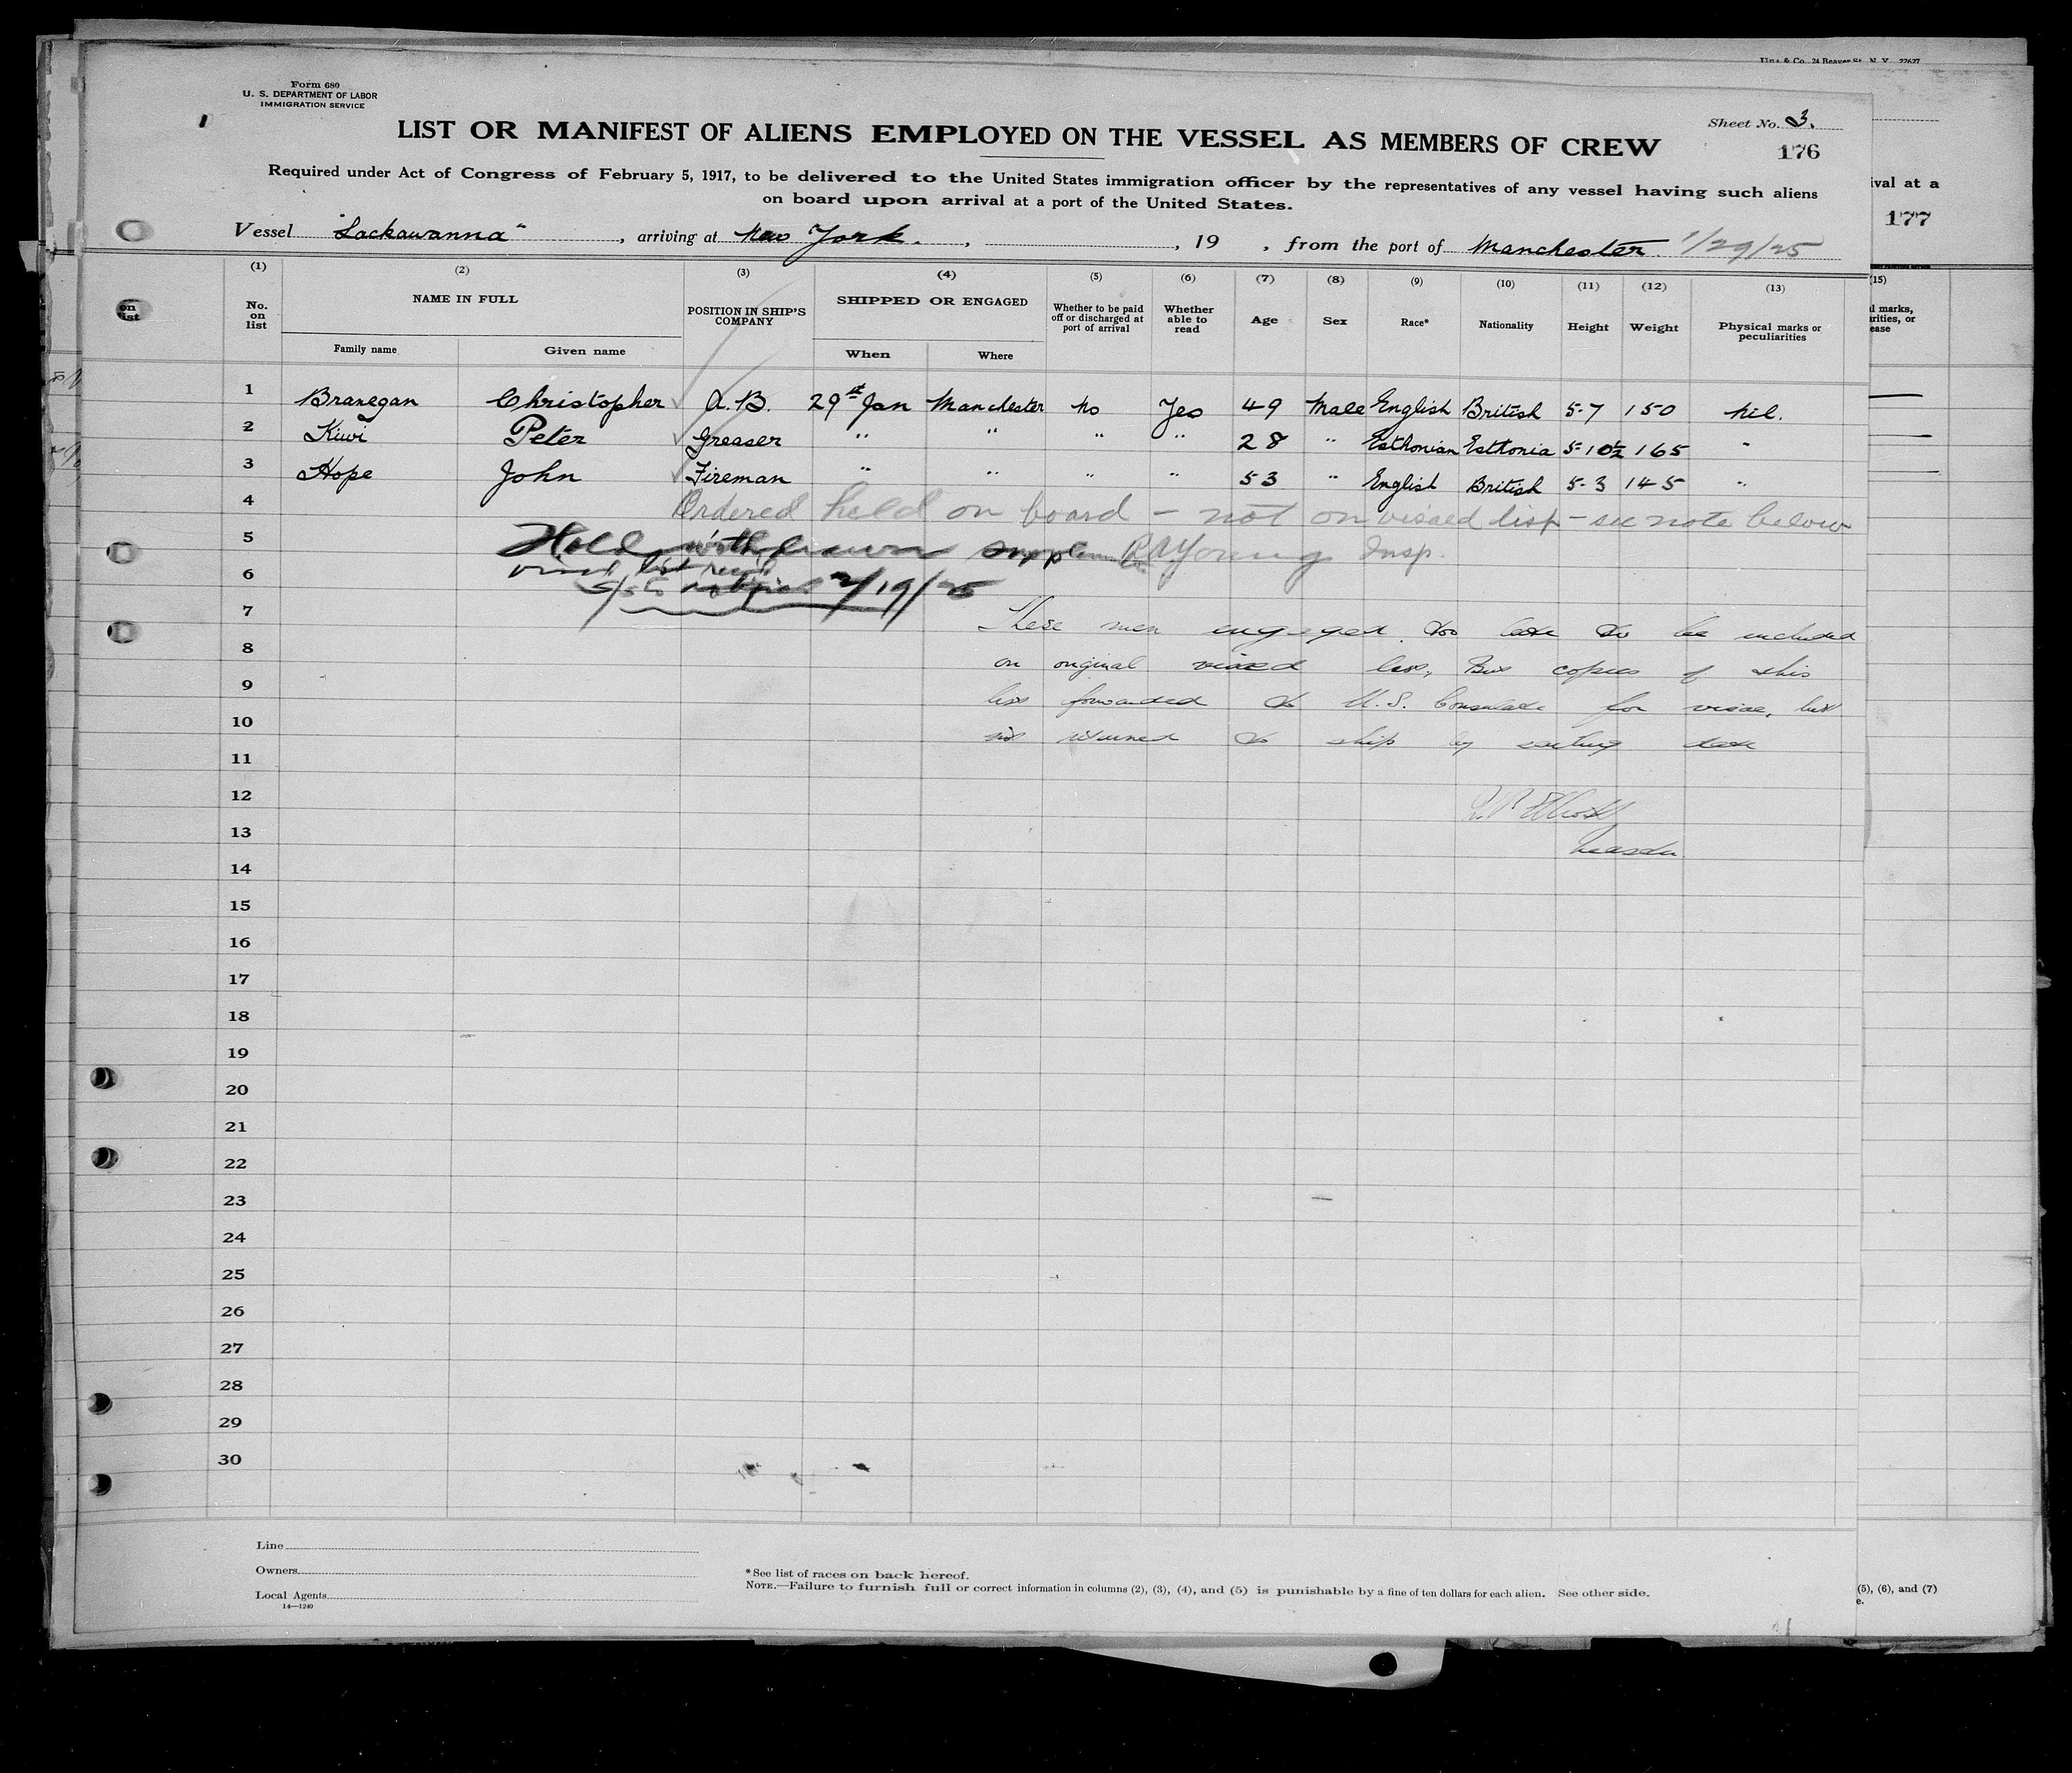 Form 680
U. S. DEPARTMENT OF LABOR
IMMIGRATION SERVICE
Sheet No. 3.
LIST OR MANIFEST OF ALIENS EMPLOYED ON THE VESSEL AS MEMBERS OF CREW
176
Required under Act of Congress of February 5, 1917, to be delivered to the United States immigration officer by the representatives of any vessel having such aliens
on board upon arrival at a port of the United States.
177
Vessel "Lackawanna", arriving at New York., 19 , from the port of Manchester. 1/29/25
(1) (2) (3) (4) (5) (6) (7) (8) (9) (10) (11) (12) (13)
No. on list NAME IN FULL POSITION IN SHIP'S COMPANY SHIPPED OR ENGAGED Whether to be paid off or discharged at port of arrival Whether able to read Age Sex Race* Nationality Height Weight Physical marks or peculiarities
Family name Given name When Where
1 Branegan Christopher A.B. 29st Jan Manchester No Yes 49 Male English British 5-7 150 Nil.
2 Kiwi Peter Greaser " " " " 28 " Esthonian Esthonia 5-10½ 165 "
3 Hope John Fireman " " " " 53 " English British 5-3 145 "
4 Ordered held on board - not on visaed list - see note below
5 Hold withdrawn Supplem R A Young Insp.
6 visa list rec'd
S/S Co notified 2/19/25
7 These men engaged too late to be included
8 on original visaed list, But copies of this
9 list forwarded to U.S. Consulate for visae, but
10 not returned to ship by sailing date
11
12
13 Master
14
15
16
17
18
19
20
21
22
23
24
25
26
27
28
29
30
Line
Owners
Local Agents
14—1240
*See list of races on back hereof.
NOTE.—Failure to furnish full or correct information in columns (2), (3), (4), and (5) is punishable by a fine of ten dollars for each alien. See other side.
(5), (6), and (7)